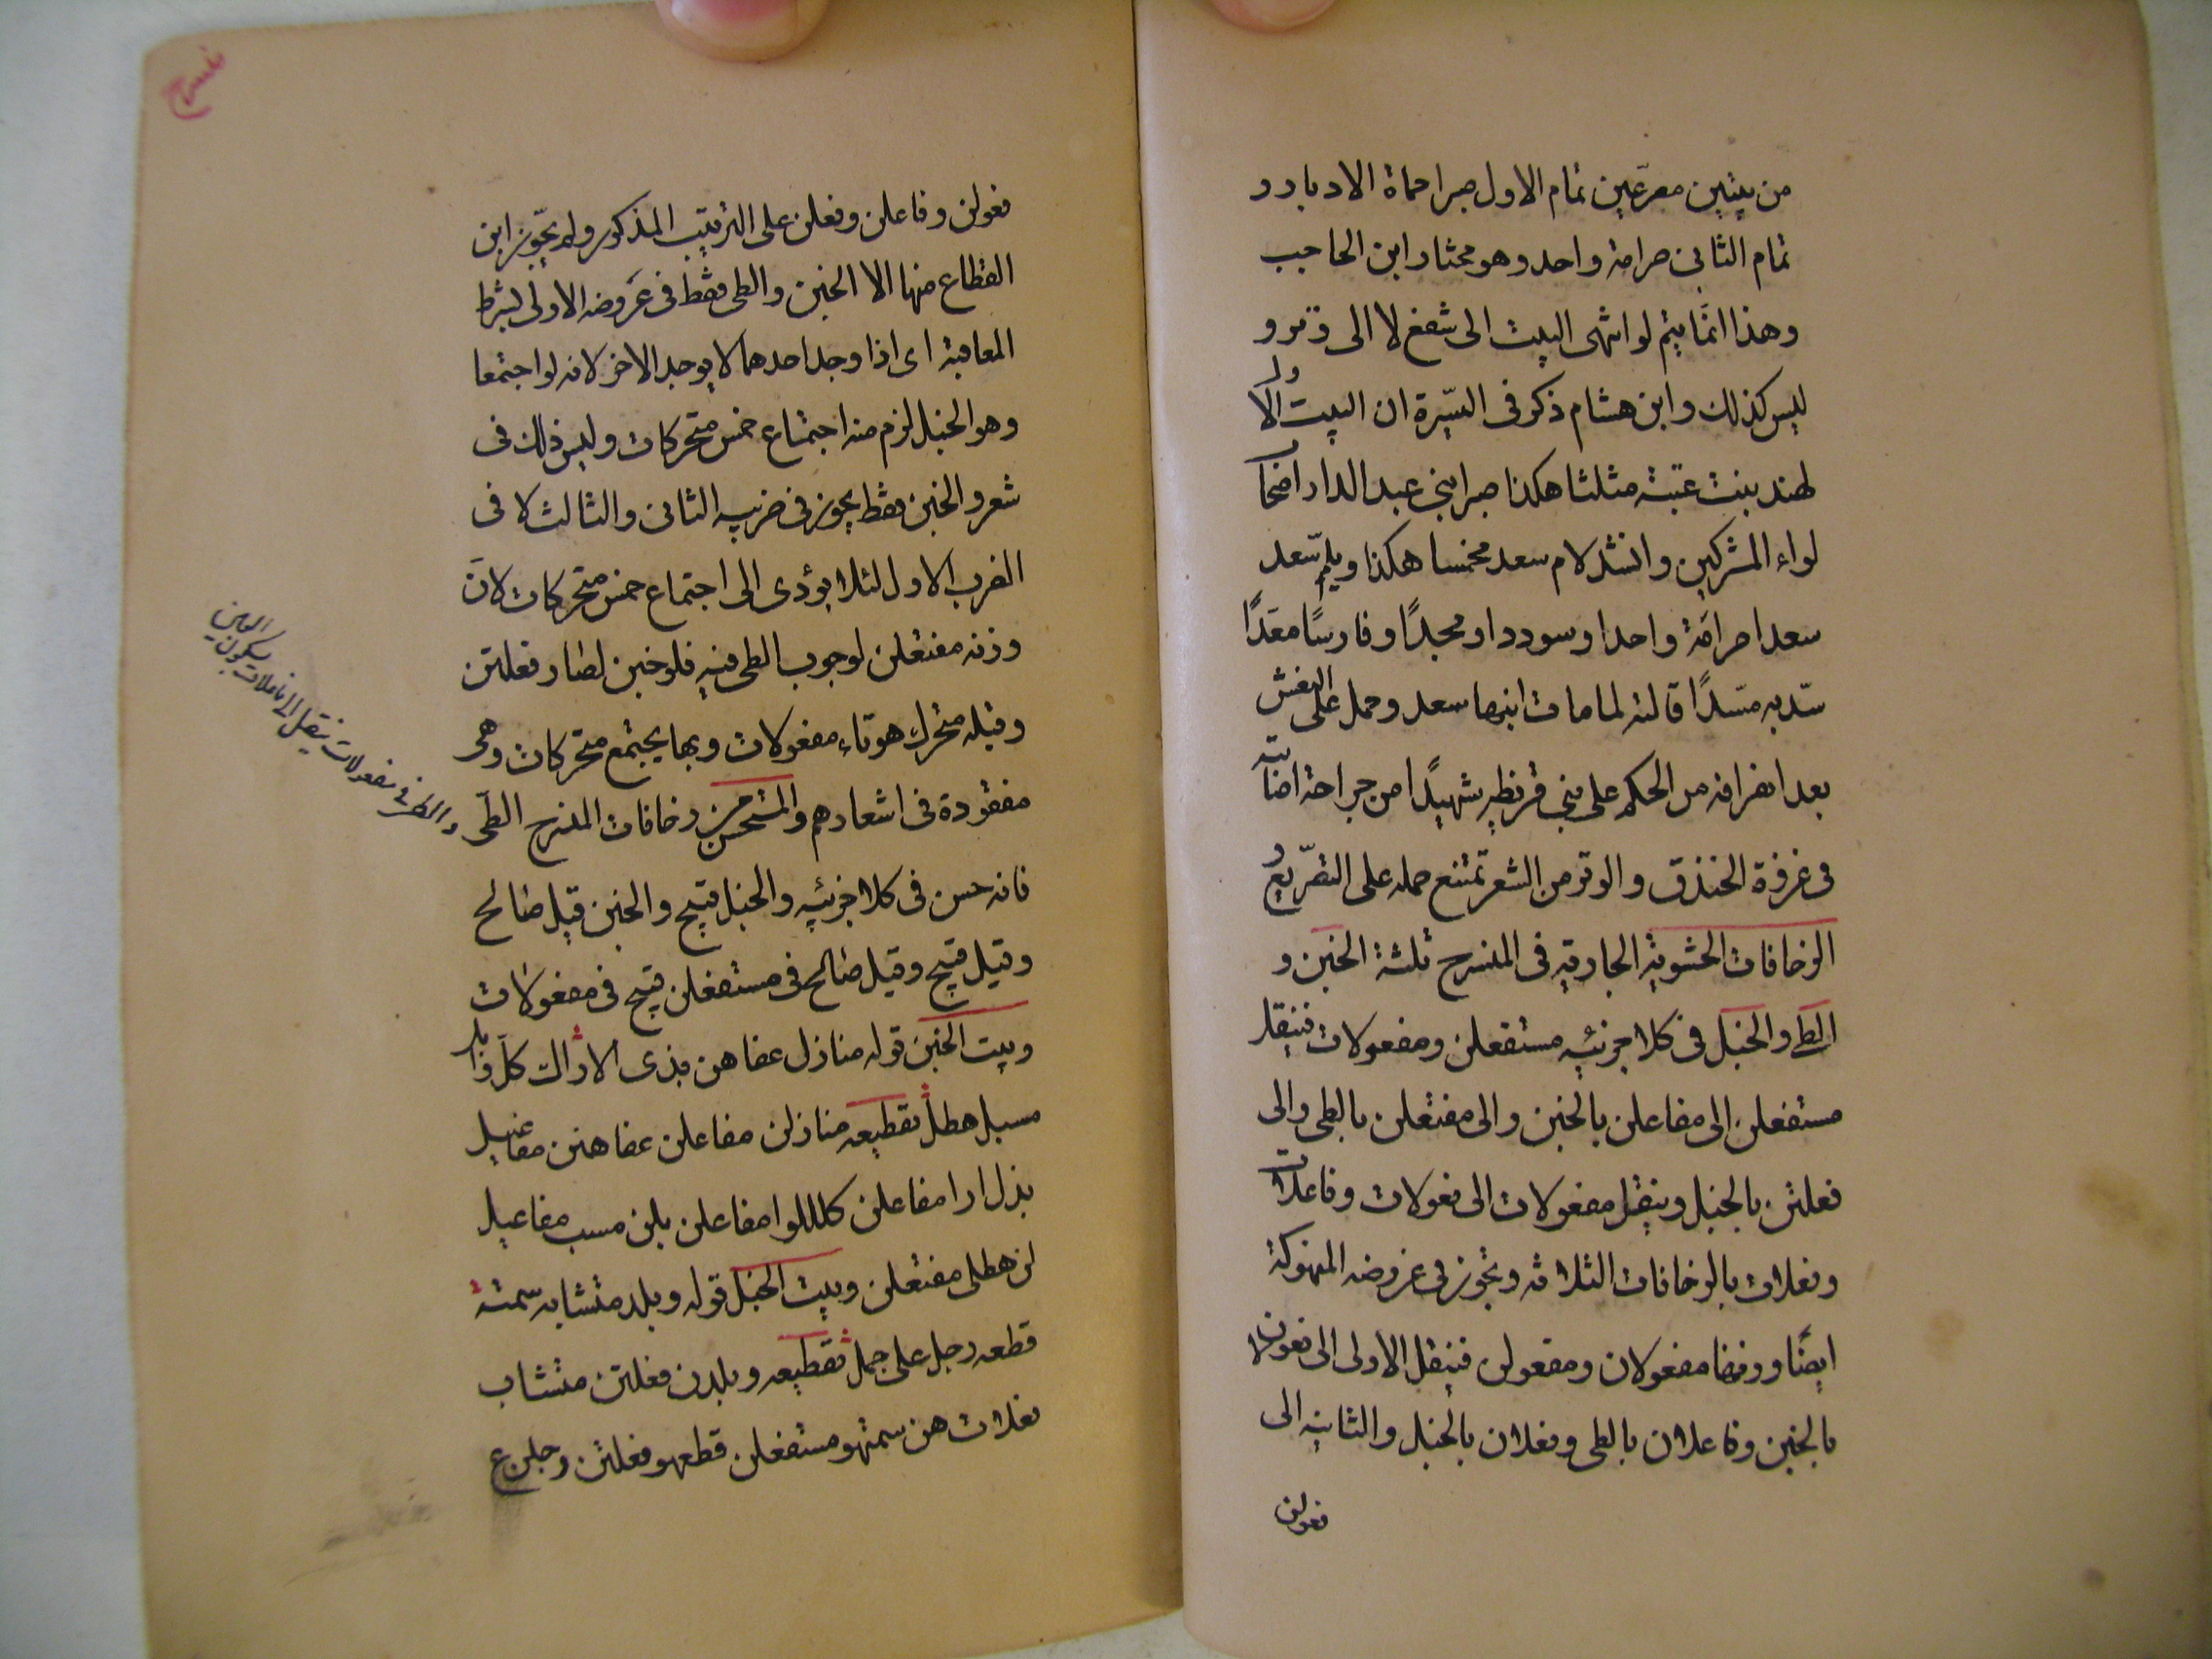 من بيتين مصرعين تمام الاول صبرا حماة الادبار و
تمام الثانى صرامة واحد وهو مختار ابن الحاجب
وهذا انما يتم لو انتهى البيت الى شفع لا الى وتر و
ليس كذلك وابن هشام ذكر فى السيرة ان البيت الاول
لهند بنت عتبة مثلثا هكذا صبرا بنى عبد الدار اصحاب
لواء المشركين وانشد لام سعد مخمسا هكذا ويلم سعد
سعدا صرامة واحدا وسوددا ومجدًا وفارسًا معدًا
سد به مسدًا قالته لما مات ابنها سعد وحمل على النعش
بعد انصرافه من الحكم على بنى قريظه شهيدًا من جراحة اصابته
فى غزوة الخندق والوتر من الشعر تمتنع حمله على التصريع و
الزحافات الحشوية الجارية فى المنسرح ثلثة الخبن و
الطى والخبل فى كلا جزئيه مستفعلن ومفعولات فينقل
مستفعلن الى مفاعلن بالخبن والى مفتعلن بالطى والى
فعلتن بالخبل وينقل مفعولات الى فعولات وفاعلات
وفعلات بالزحافات الثلاثه وتجوز فى عروضه المنهوكة
ايضًا ووزنها مفعولان ومفعولن فينقل الاولى الى فعولان
بالخبن وفاعلان بالطى وفعلان بالخبل والثانية الى
فعولن
منسرح
فعولن وفاعلن وفعلن على الترتيب المذكور ولم يجوز ابن
القطاع منها الا الخبن والطى فقط فى عروضه الاولى بشرط
المعاقبة اى اذا وجد احدهما لا يوجد الاخر لانه لو اجتمعا
وهو الخبل لزم منه اجتماع خمس متحركات وليس ذلك فى
شعر والخبن فقط يجوز فى ضربيه الثانى والثالث لا فى
الضرب الاول لئلا يؤدى الى اجتماع خمس متحركات لان
وزنه مفتعلن لوجوب الطى فيه فلو خبن لصار فعلتن
وقبله متحرك هو تاء مفعولات وبها يجتمع متحركات وهى
مفقودة فى اشعارهم والمستحسن من زحافات المنسرح الطى
فانه حسن فى كلا جزئيه والخبل قبيح والخبن قيل صالح
وقيل قبيح وقيل صالح فى مستفعلن قبيح فى مفعولات
وبيت الخبن قوله منازل عفاهن بذى الاراك كل وابل
مسبل هطل تقطيعه منازلن مفاعلن عفاهنن مفاعيل
بذل ارا مفاعلن كلللوا مفاعلن بلن مسب مفاعيل
لن هطلى مفتعلن وبيت الخبل قوله وبلد متشابه سمته
قطعه رجل على جمل تقطيعه وبلدن فعلتن متشاب
فعلات هن سمتهو مستفعلن قطعهو فعلتن رجلن ع
والطى فى مفعولات ينقل الى فاعلات بسكون العين